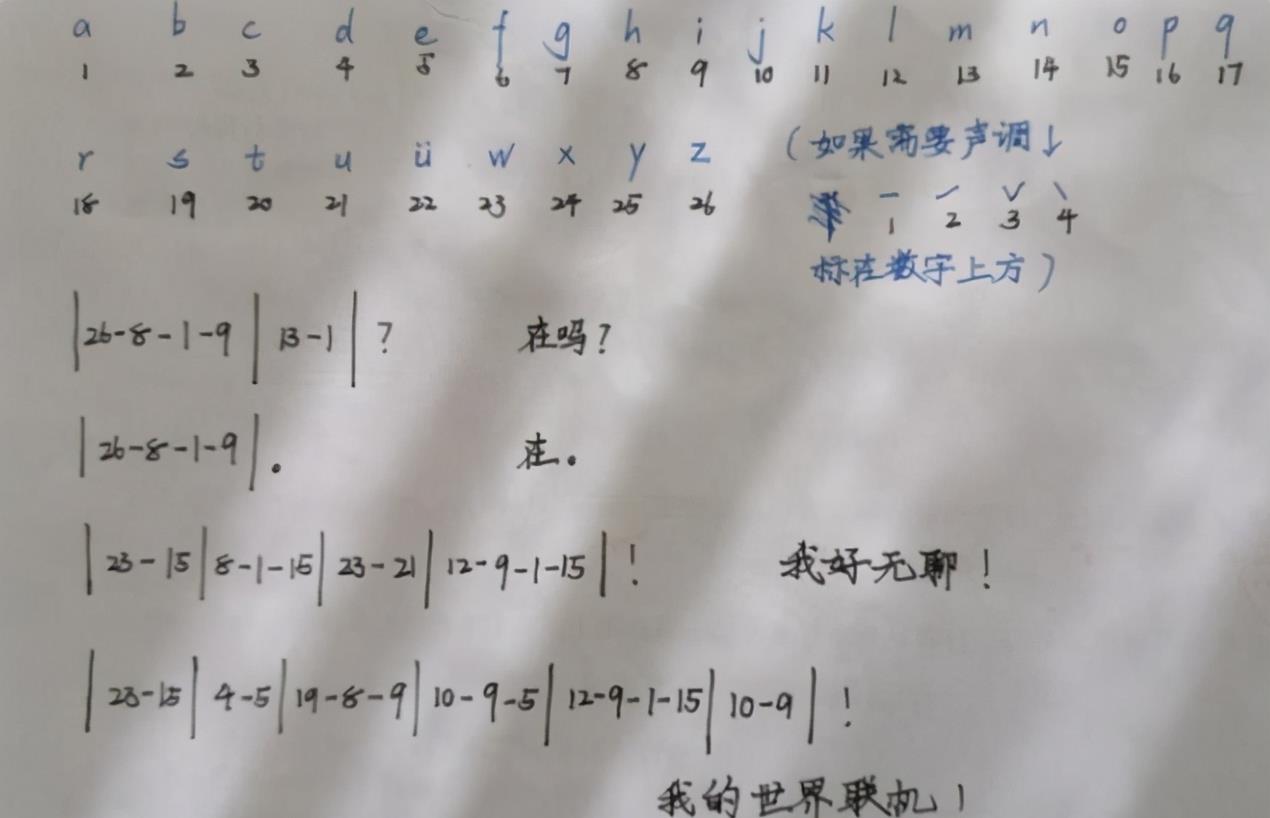 a b c d e f g h i j k l m n o p q
1 2 3 4 5 6 7 8 9 10 11 12 13 14 15 16 17
r s t u ü w x y z （如果需要声调↓
18 19 20 21 22 23 24 25 26 ˉ ˊ ˇ ˋ
1 2 3 4
标在数字上方）
|26-8-1-9|13-1|？ 在吗？
|26-8-1-9|。 在。
|23-15|8-1-15|23-21|12-9-1-15|！ 我好无聊！
|23-15|4-5|19-8-9|10-9-5|12-9-1-15|10-9|！
我的世界联机！